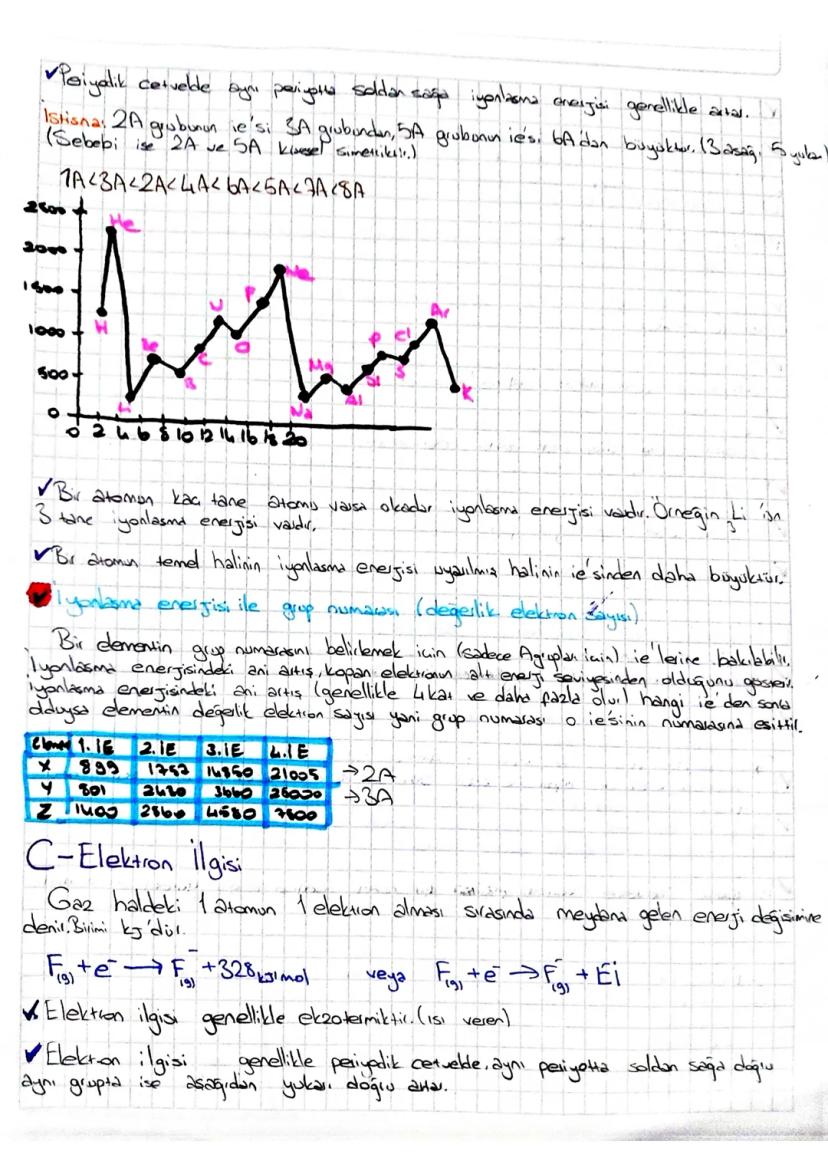 ✓Periyodik cetvelde aynı periyotta soldan sağa iyonlaşma enerjisi genellikle artar.
İstisna: 2A grubunun ie'si 3A grubundan, 5A grubunun ie'si 6A'dan büyüktür. (3 aşağı, 5 yukarı)
(Sebebi ise 2A ve 5A küresel simetriktir.)
1A<3A<2A<4A<6A<5A<7A<8A
2500
He
2000
Ne
1500
F
N
Ar
H
P Cl
1000
Be
O
C
Mg
500
B
Si
S
Li
Al
K
0
Na
0 2 4 6 8 10 12 14 16 18 20
✓Bir atomun kaç tane atomu varsa okadar iyonlaşma enerjisi vardır. Örneğin ₃Li 'un
3 tane iyonlaşma enerjisi vardır.
✓Bir atomun temel halinin iyonlaşma enerjisi uyarılmış halinin ie'sinden daha büyüktür.
✓İyonlaşma enerjisi ile grup numarası (değerlik elektron sayısı)
Bir elementin grup numarasını belirlemek için (sadece A grupları için) ie'lerine bakılabilir.
İyonlaşma enerjisindeki ani artış, kopan elektronun alt enerji seviyesinden olduğunu gösterir.
İyonlaşma enerjisindeki ani artış (genellikle 4 kat ve daha fazla olur) hangi ie'den sonra
olduysa elementin değerlik elektron sayısı yani grup numarası o ie'sinin numarasına eşittir.
1.İE 2.İE 3.İE 4.İE
X 899 1757 14850 21005 →2A
Y 801 2430 3660 26000 →3A
Z 1400 2860 4580 7500
C-Elektron İlgisi
Gaz haldeki 1 atomun 1 elektron alması sırasında meydana gelen enerji değişimine
denir. Birimi kj'dür.
F(g) + e⁻ → F⁻(g) + 328 kj/mol veya F(g) + e⁻ → F⁻(g) + Ei
✓Elektron ilgisi genellikle ekzotermiktir. (ısı veren)
✓Elektron ilgisi genellikle periyodik cetvelde, aynı periyotta soldan sağa doğru
aynı grupta ise aşağıdan yukarı doğru artar.